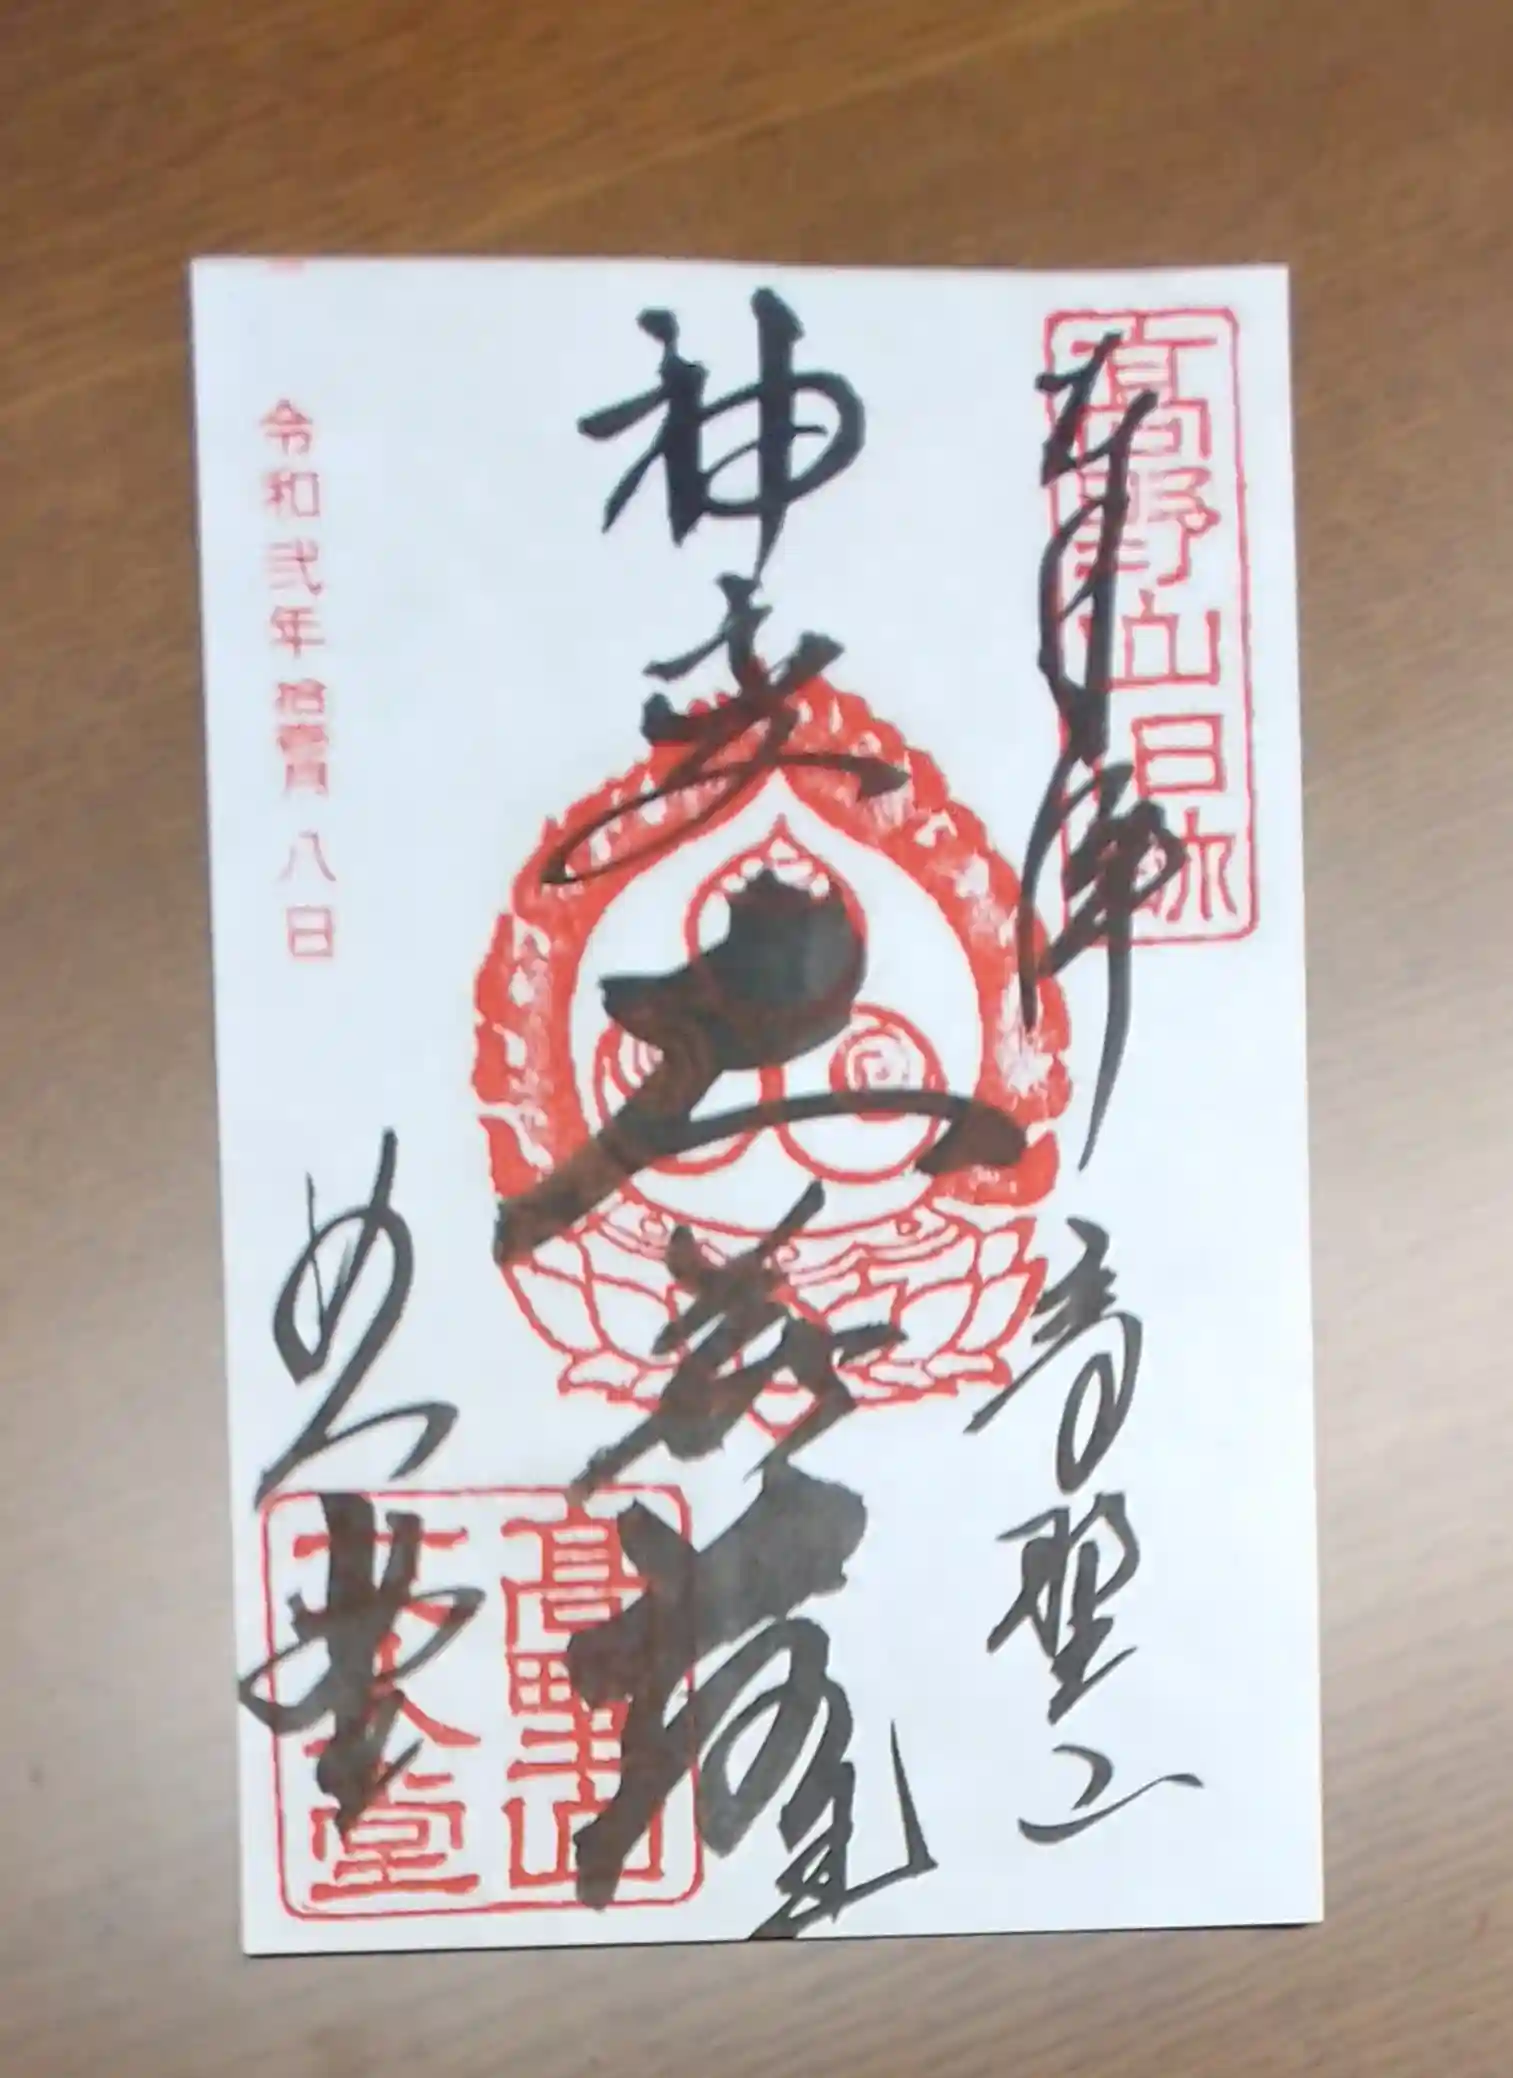 奉拝 高野山
神変大菩薩
女人堂
令和弐年拾壹月八日
高野山
女人堂
高野山